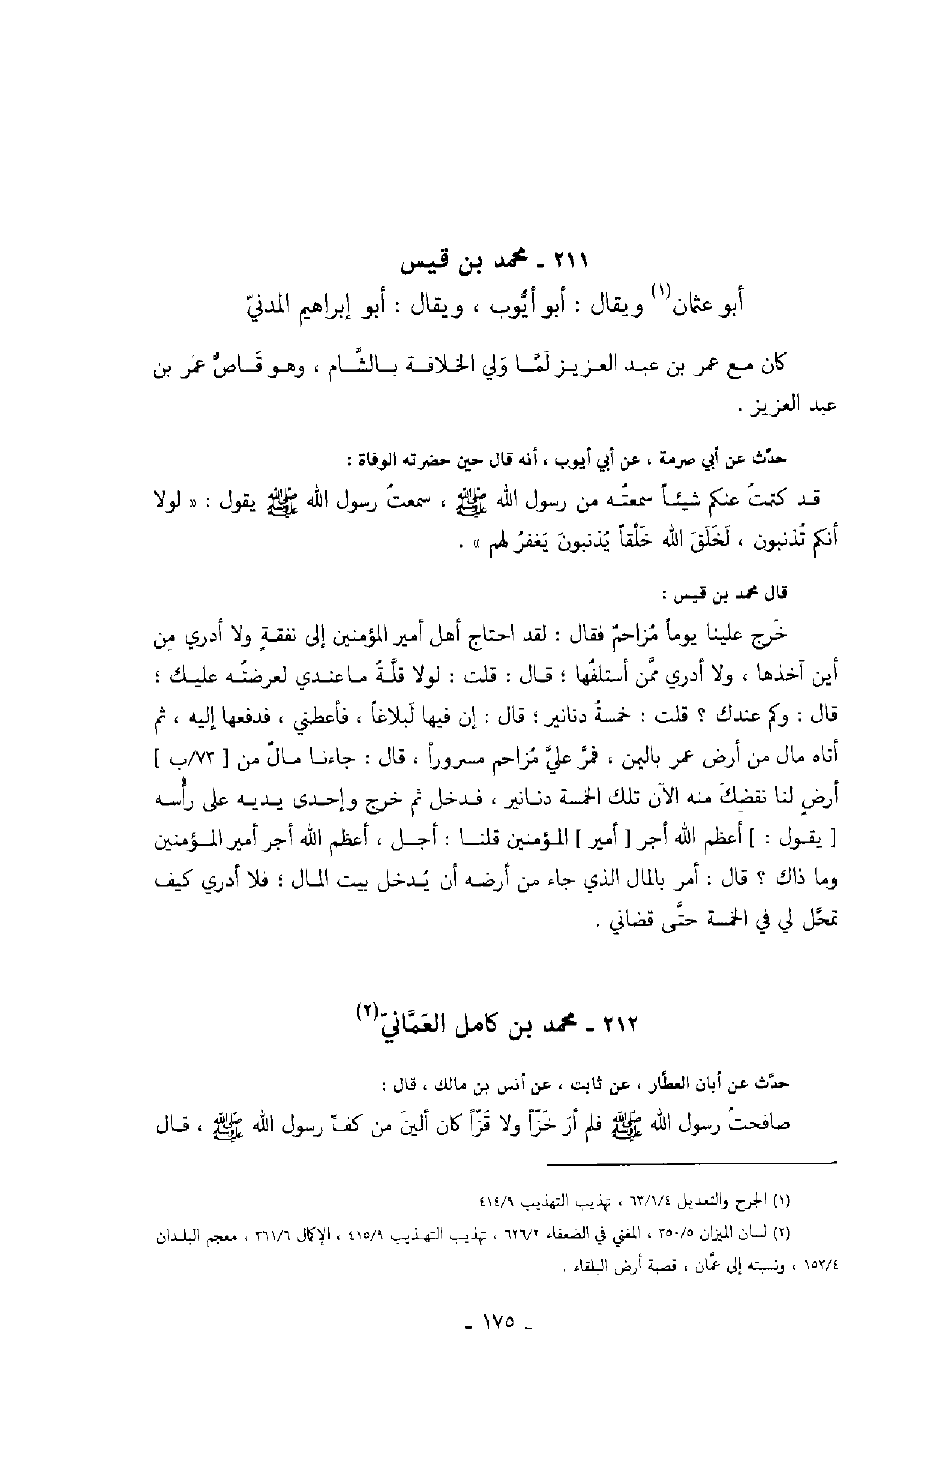 ٢١١ ـ محمد بن قيس
أبو عثمان(١) ويقال : أبو أيُّوب ، ويقال : أبو إبراهيم المدنيّ
كان مـع عمر بن عبـد العـزيـز لَمَّـا وَلي الخـلافـة بـالشَّـام ، وهـو قَـاصُّ عمَر بن
عبد العزيز .
حدّث عن أبي صرمة ، عن أبي أيوب ، أنه قال حين حضرته الوفاة :
قـد كتمتُ عنكم شيئـاً سمعتُـه من رسول الله ﷺ ، سمعتُ رسول الله ﷺ يقول : « لولا
أنكم تُذنبون ، لَخَلَقَ الله خَلْقاً يُذنبونَ يَغفرُ لهم » .
قال محمد بن قيس :
خَرج علينا يوماً مُزاحمٌ فقال : لقد احتاج أهل أمير المؤمنين إلى نفقـةٍ ولا أدري مِن
أين آخذها ، ولا أدري ممَّن أستلفُها ؛ قـال : قلت : لولا قلَّـةُ مـاعنـدي لعرضتُـه عليـك ؛
قال : وكم عندك ؟ قلت : خمسةُ دنانير ؛ قال : إن فيها لَبلاغاً ، فأعطني ، فدفعها إليه ، ثم
أتاه مال من أرض عمر باليمن ، فمَّر عليَّ مُزاحم مسروراً ، قال : جاءنـا مـالٌ من [ ٧٣/ب ]
أرضٍ لنا نقضكَ منه الآن تلك الخمسة دنـانير ، فـدخل ثم خرج وإحـدى يـديـه على رأُسـه
[ يقـول : ] أعظم الله أجر [ أمير ] المـؤمنين قلنـا : أجـل ، أعظم الله أجر أمير المـؤمنين
وما ذاك ؟ قال : أمر بالمال الذي جاء من أرضـه أن يُـدخل بيت المـال ؛ فلا أدري كيف
تمحَّل لي في الخمسة حتَّى قضاني .
٢١٢ ـ محمد بن كامل العَمَّانيّ(٢)
حدَّث عن أبان العطَّار ، عن ثابت ، عن أنس بن مالك ، قال :
صافحتُ رسول الله ﷺ فلم أرَ خَزّاً ولا قَزّاً كان ألينَ من كفّ رسول الله ﷺ ، قـال
(١) الجرح والتعديل ٦٣/١/٤ ، تهذيب التهذيب ٤١٤/٩
(٢) لسان الميزان ٣٥٠/٥ ، المغني في الضعفاء ٦٢٦/٢ ، تهذيب التهذيب ٤١٥/٩ ، الإكمال ٣٦١/٦ ، معجم البلدان
١٥٣/٤ ، ونسبته إلى عمَّان ، قصبة أرض البلقاء .
ـ ١٧٥ ـ